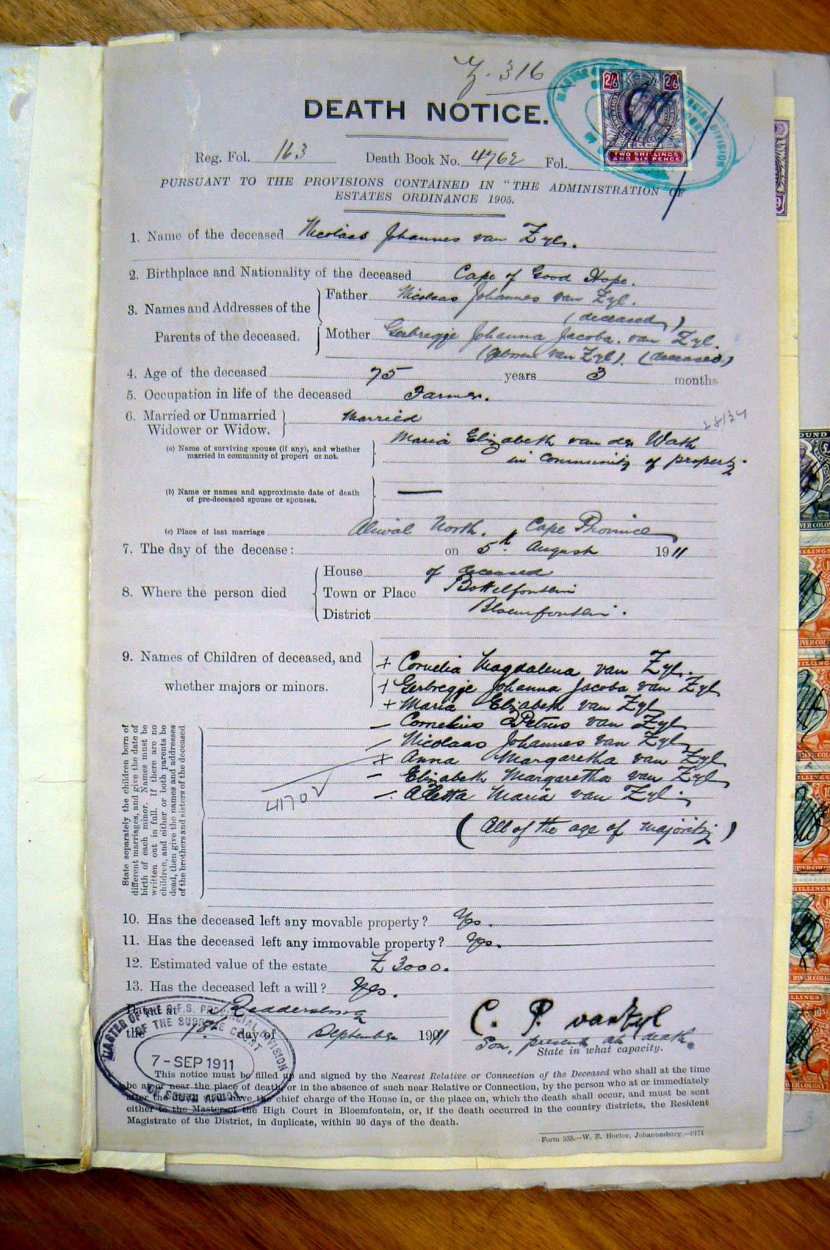 Z. 316
DEATH NOTICE.
2/6 2/6
TWO SHILLINGS
AND SIX PENCE
Reg. Fol. 163 Death Book No. 4762 Fol.
PURSUANT TO THE PROVISIONS CONTAINED IN "THE ADMINISTRATION OF
ESTATES ORDINANCE 1905.
1. Name of the deceased Nicolaas Johannes van Zyl.
2. Birthplace and Nationality of the deceased Cape of Good Hope.
3. Names and Addresses of the Parents of the deceased.
Father Nicolaas Johannes van Zyl.
(deceased)
Mother Gerbregge Johanna Jacoba van Zyl.
(geboren van Zyl). (deceased)
4. Age of the deceased 75 years 3 months
5. Occupation in life of the deceased Farmer.
6. Married or Unmarried
Widower or Widow.
Married
(a) Name of surviving spouse (if any), and whether
married in community of propert or not.
Maria Elizabeth van der Wath
in community of property.
(b) Name or names and approximate date of death
of pre-deceased spouse or spouses.
—
(c) Place of last marriage Aliwal North. Cape Province
7. The day of the decease: on 5th August 1911
8. Where the person died
House of deceased
Town or Place Bottelfontein
District Bloemfontein.
9. Names of Children of deceased, and
whether majors or minors.
+ Cornelia Magdalena van Zyl.
+ Gerbregge Johanna Jacoba van Zyl
+ Maria Elizabeth van Zyl
– Cornelius Petrus van Zyl
– Nicolaas Johannes van Zyl
+ Anna Margaretha van Zyl
– Elizabeth Margaretha van Zyl
– Aletta Maria van Zyl.
(All of the age of majority)
41702
State separately the children born of
different marriages, and give the date of
birth of each minor. Names must be
written out in full. If there are no
children, and either or both parents be
dead, then give the names and addresses
of the brothers and sisters of the deceased
10. Has the deceased left any movable property? Yes.
11. Has the deceased left any immovable property? Yes.
12. Estimated value of the estate £3000.
13. Has the deceased left a will? Yes.
Reddersburg
the day of September 1911
C. P. van Zyl
Son, present at death.
State in what capacity.
MASTER OF THE O.F.S. PROVINCIAL DIVISION
OF THE SUPREME COURT
7-SEP 1911
OF SOUTH AFRICA
This notice must be filled up and signed by the Nearest Relative or Connection of the Deceased who shall at the time
be at or near the place of death, or in the absence of such near Relative or Connection, by the person who at or immediately
after the death have chief charge of the House in, or the place on, which the death shall occur, and must be sent
either to the Master of the High Court in Bloemfontein, or, if the death occurred in the country districts, the Resident
Magistrate of the District, in duplicate, within 30 days of the death.
Form 535.—W. E. Hortor, Johannesburg.—6171